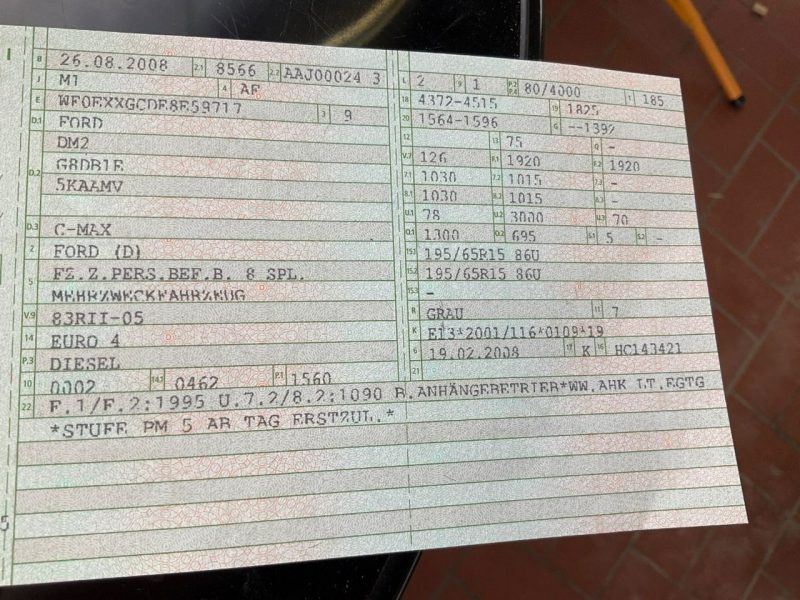 B 26.08.2008 2.1 8566 2.2 AAJ00024 3
J M1 4 AF
E WF0EXXGCDE8E59717 3 9
D.1 FORD
D.2 DM2
G8DB1E
5KAAMV
D.3 C-MAX
2 FORD (D)
5 FZ.Z.PERS.BEF.B. 8 SPL.
MEHRZWECKFAHRZEUG
V.9 83RII-05
14 EURO 4
P.3 DIESEL
10 0002 14.1 0462 P.1 1560
L 2 9 1 P.2 P.4 80/4000 T 185
18 4372-4515 19 1825
20 1564-1596 G --1392
12 13 75 Q -
V.7 126 F.1 1920 F.2 1920
7.1 1030 7.2 1015 7.3 -
8.1 1030 8.2 1015 8.3 -
U.1 78 U.2 3000 U.3 70
O.1 1300 O.2 695 S.1 5 S.2 -
15.1 195/65R15 86U
15.2 195/65R15 86U
15.3 -
R GRAU 11 7
K E13*2001/116*0109*19
6 19.02.2008 17 K 16 HC143421
21
22 F.1/F.2:1995 U.7.2/8.2:1090 B.ANHÄNGEBETRIEB*WW.AHK LT.EGTG
*STUFE PM 5 AB TAG ERSTZUL.*
5